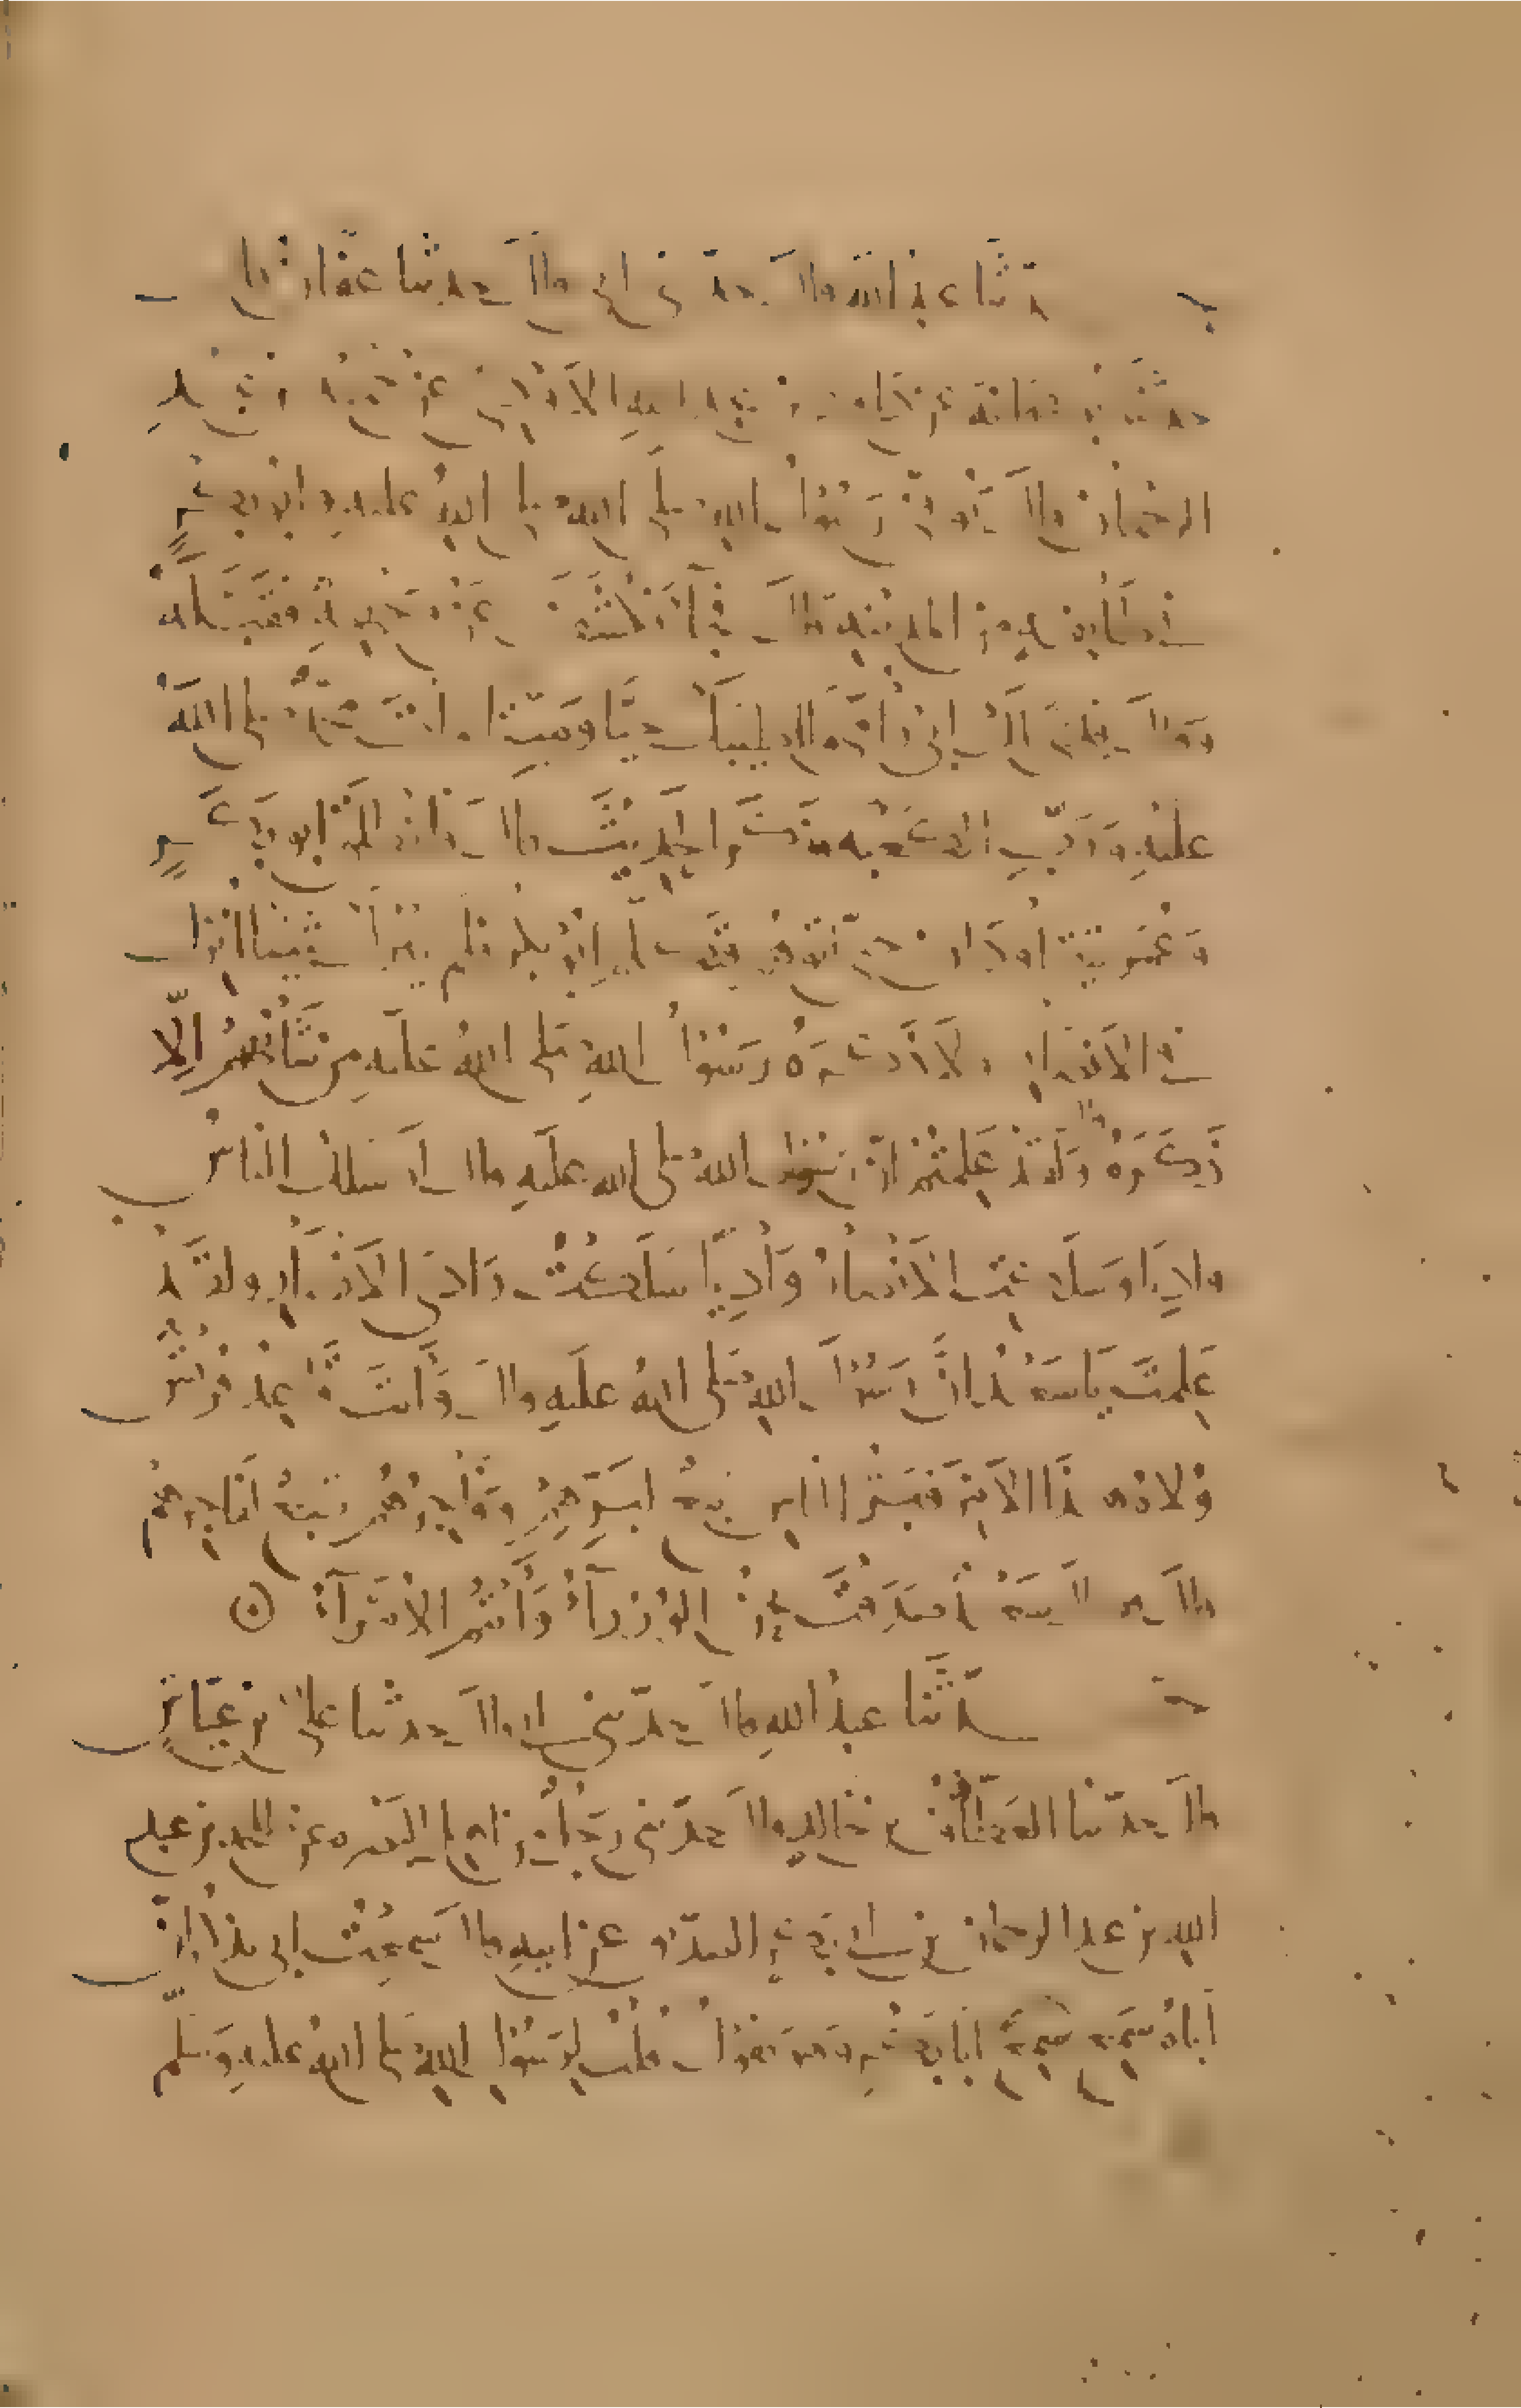 حدثنا عبد الله قال حدثني ابي قال حدثنا عفان قال
حدثنا ابو عوانة عن داود بن عبد الله الاودي عن حميد بن عبد
الرحمان قال توفي رسول الله صلى الله عليه وابو بكر
في طائفة من المدينة قال فجاء فكشف عن وجهه فقبله
وقال فداك ابي وامي ما اطيبك حيا وميتا مات محمد صلى الله
عليه ورب الكعبة فذكر الحديث قال فانطلق ابو بكر
وعمر يتقاودان حتى اتوهم فتكلم ابو بكر فلم يترك شيئا انزل
في الانصار ولا ذكره رسول الله صلى الله عليه من شأنهم الا
ذكره وقال ولقد علمتم ان رسول الله صلى الله عليه قال لو سلك الناس
واديا وسلكت الانصار واديا سلكت وادي الانصار ولقد
علمت يا سعد ان رسول الله صلى الله عليه قال وانت قاعد قريش
ولاة هذا الامر فبر الناس تبع لبرهم وفاجرهم تبع لفاجرهم
قال فقال له سعد صدقت نحن الوزراء وانتم الامراء
حدثنا عبد الله قال حدثني ابي قال حدثنا علي بن عياش
قال حدثنا العطاف بن خالد قال حدثني رجل من اهل البصرة عن طلحة بن عبد
الله بن عبد الرحمان بن ابي بكر الصديق عن ابيه قال سمعت ابي يذكر ان
اباه سمع ابا بكر وهو يقول قلت لرسول الله صلى الله عليه وسلم